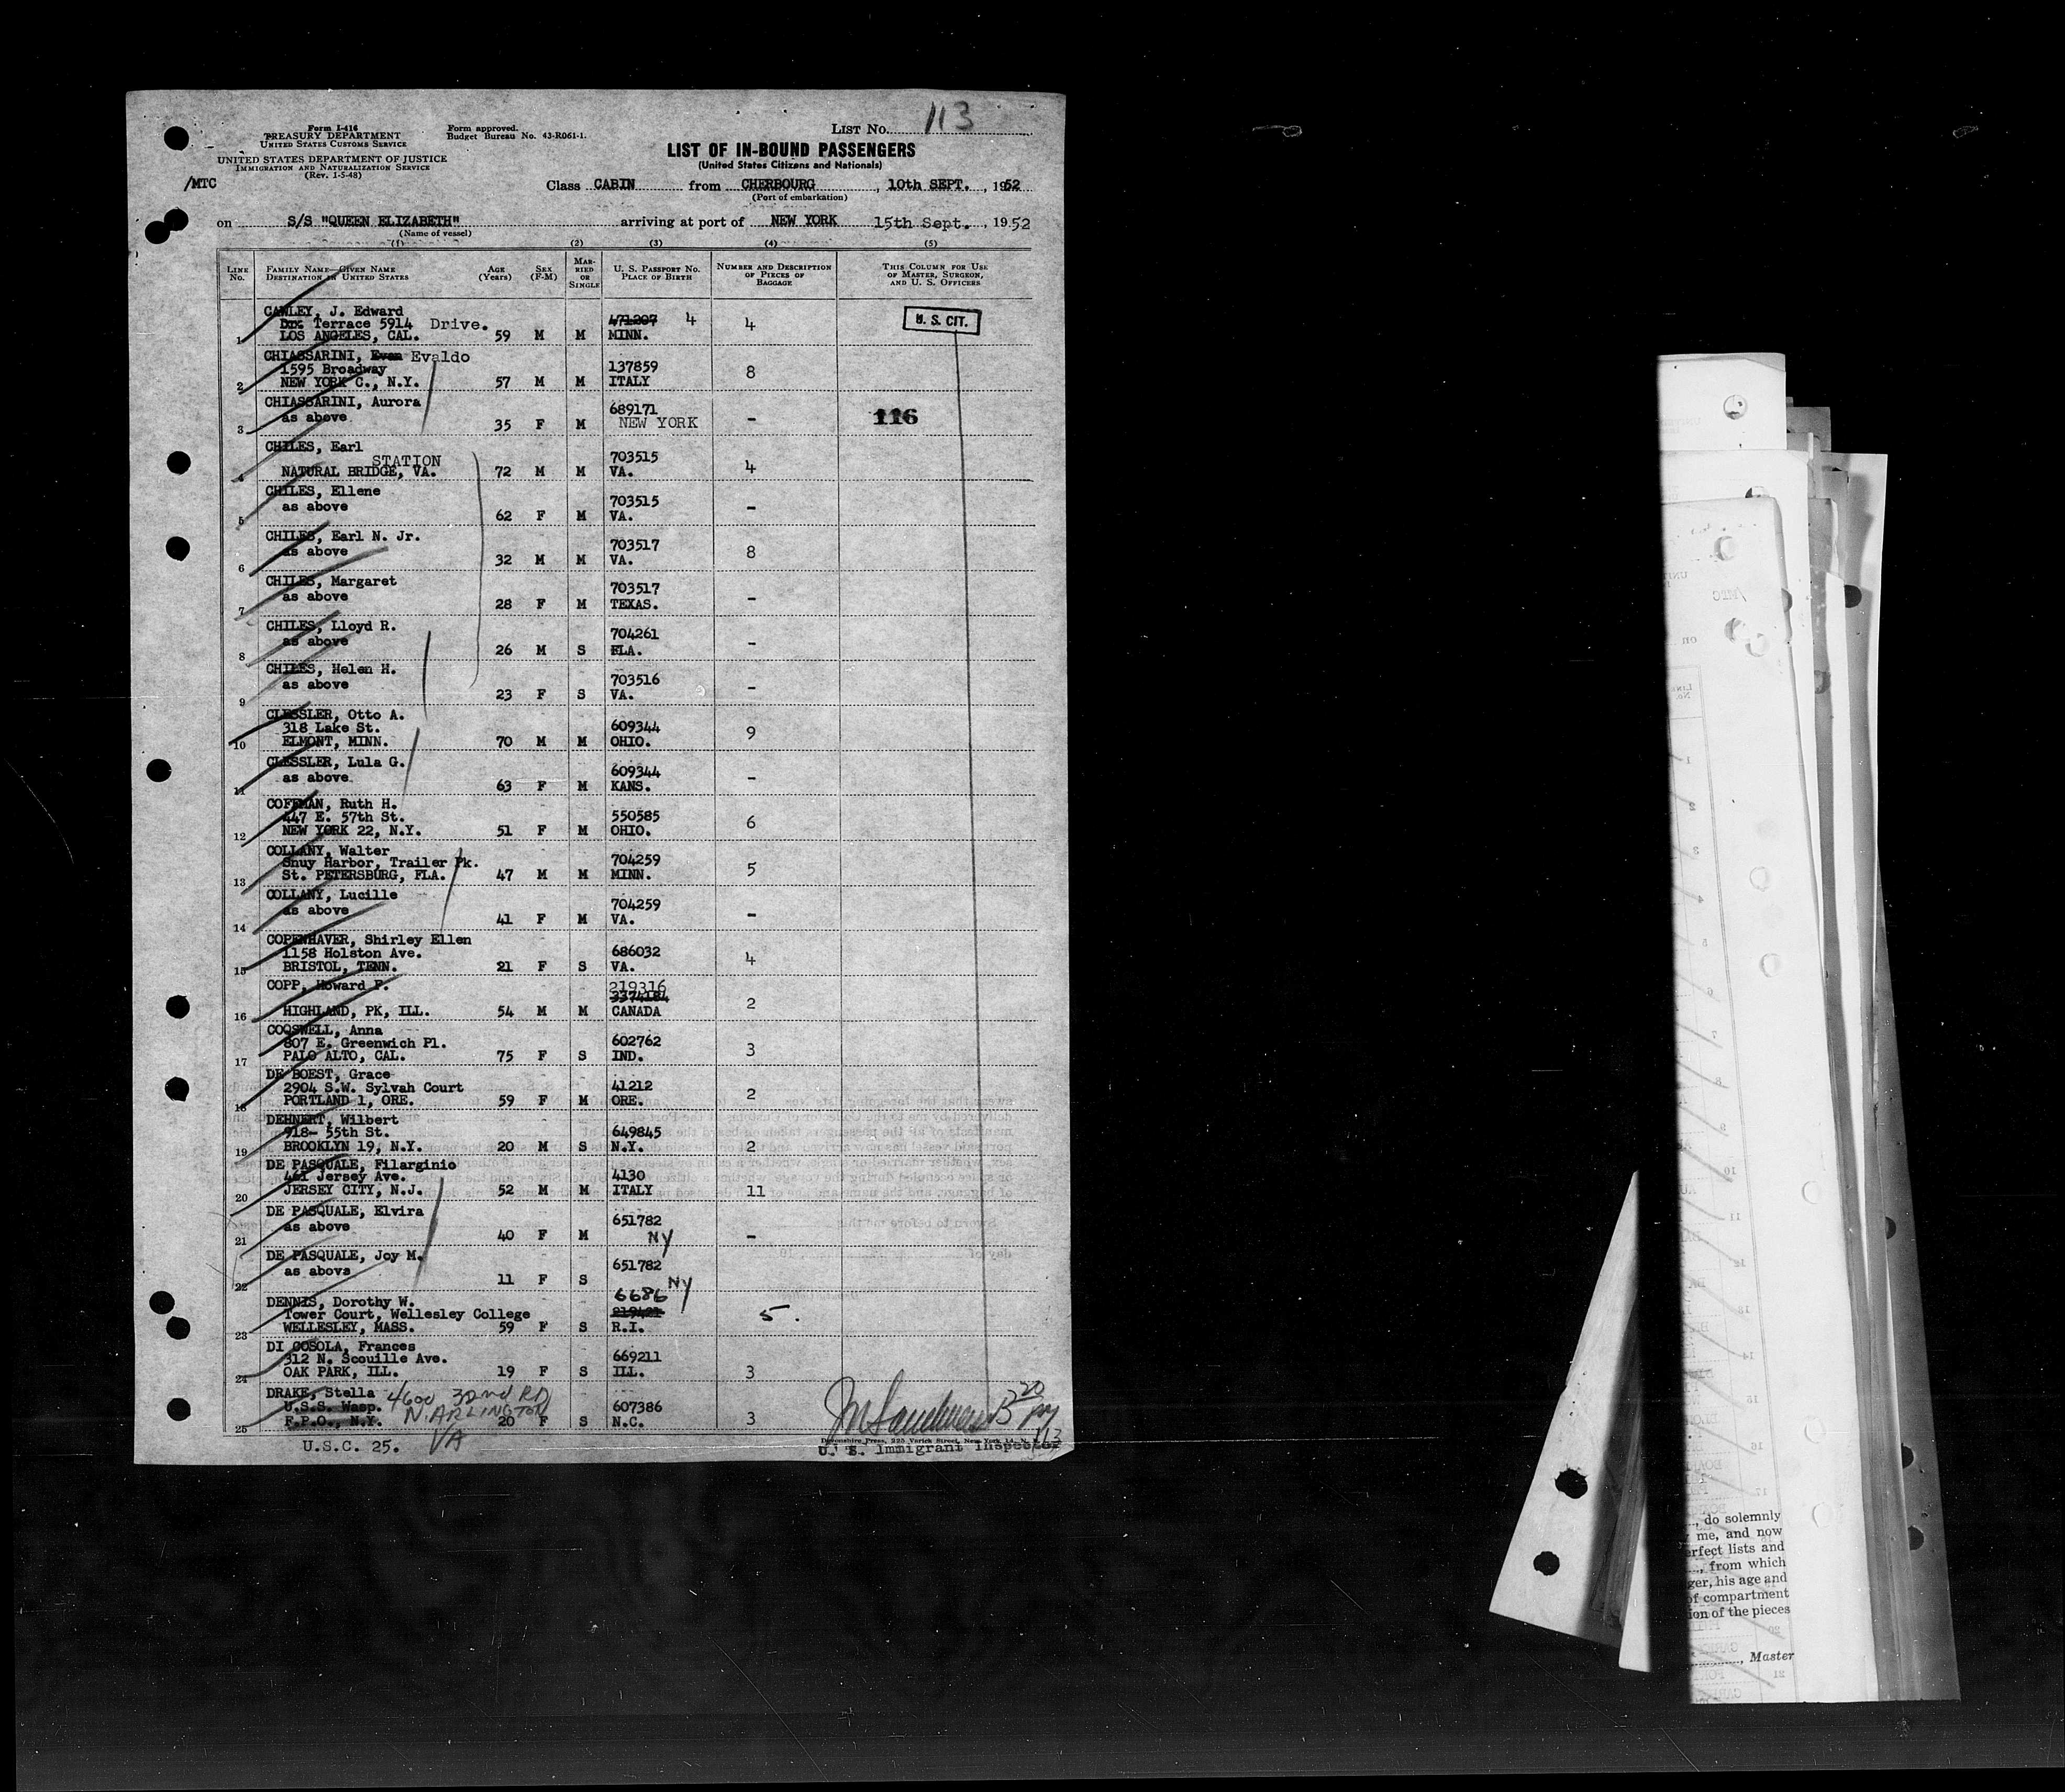 Form I-416
TREASURY DEPARTMENT
UNITED STATES CUSTOMS SERVICE
Form approved.
Budget Bureau No. 43-R061-1.
LIST No. 113
UNITED STATES DEPARTMENT OF JUSTICE
IMMIGRATION AND NATURALIZATION SERVICE
(Rev. 1-5-48)
LIST OF IN-BOUND PASSENGERS
(United States Citizens and Nationals)
/MTC
Class CABIN from CHERBOURG, 10th SEPT., 1952
(Port of embarkation)
on S/S "QUEEN ELIZABETH" arriving at port of NEW YORK 15th Sept., 1952
(Name of vessel)
(1) (2) (3) (4) (5)
LINE No. FAMILY NAME—GIVEN NAME DESTINATION IN UNITED STATES AGE (Years) SEX (F-M) MARRIED OR SINGLE U. S. PASSPORT No. PLACE OF BIRTH NUMBER AND DESCRIPTION OF PIECES OF BAGGAGE THIS COLUMN FOR USE OF MASTER, SURGEON, AND U. S. OFFICERS
CAWLEY, J. Edward
Terrace 5914 Drive. 471207 4 4 U. S. CIT.
1 LOS ANGELES, CAL. 59 M M MINN.
CHIASSARINI, Evan Evaldo
1595 Broadway 137859 8
2 NEW YORK C., N.Y. 57 M M ITALY
CHIASSARINI, Aurora
as above 689171 - 116
3 35 F M NEW YORK
CHILES, Earl
STATION 703515 4
4 NATURAL BRIDGE, VA. 72 M M VA.
CHILES, Ellene
as above 703515 -
5 62 F M VA.
CHILES, Earl N. Jr.
as above 703517 8
6 32 M M VA.
CHILES, Margaret
as above 703517 -
7 28 F M TEXAS.
CHILES, Lloyd R.
as above 704261 -
8 26 M S FLA.
CHILES, Helen H.
as above 703516 -
9 23 F S VA.
CLESSLER, Otto A.
318 Lake St. 609344 9
10 ELMONT, MINN. 70 M M OHIO.
CLESSLER, Lula G.
as above 609344 -
11 63 F M KANS.
COFFMAN, Ruth H.
447 E. 57th St. 550585 6
12 NEW YORK 22, N.Y. 51 F M OHIO.
COLLANY, Walter
Snuy Harbor, Trailer Pk. 704259 5
13 St. PETERSBURG, FLA. 47 M M MINN.
COLLANY, Lucille
as above 704259 -
14 41 F M VA.
COPENHAVER, Shirley Ellen
1158 Holston Ave. 686032 4
15 BRISTOL, TENN. 21 F S VA.
COPP, Howard F. 219316
3374184 2
16 HIGHLAND, PK, ILL. 54 M M CANADA
COQSWELL, Anna
807 E. Greenwich Pl. 602762 3
17 PALO ALTO, CAL. 75 F S IND.
DE BOEST, Grace
2904 S.W. Sylvah Court 41212 2
18 PORTLAND 1, ORE. 59 F M ORE.
DEHNERT, Wilbert
918- 55th St. 649845 2
19 BROOKLYN 19, N.Y. 20 M S N.Y.
DE PASQUALE, Filarginio
461 Jersey Ave. 4130 11
20 JERSEY CITY, N.J. 52 M M ITALY
DE PASQUALE, Elvira
as above 651782 -
21 40 F M NY
DE PASQUALE, Joy M.
as above 651782
22 11 F S NY
DENNIS, Dorothy W. 6686
Tower Court, Wellesley College 5.
23 WELLESLEY, MASS. 59 F S R.I.
DI COSOLA, Frances
312 N. Scouille Ave. 669211 3
24 OAK PARK, ILL. 19 F S ILL.
DRAKE, Stella 4600 32nd RD
U.S.S. Wasp. N. ARLINGTON 607386 3
25 F.P.O., N.Y. 20 F S N.C.
VA
U.S.C. 25.
Devonshire Press, 225 Varick Street, New York 14, N. Y.
U. S. Immigrant Inspector
, do solemnly
me, and now
erfect lists and
, from which
ger, his age and
of compartment
ion of the pieces
, Master